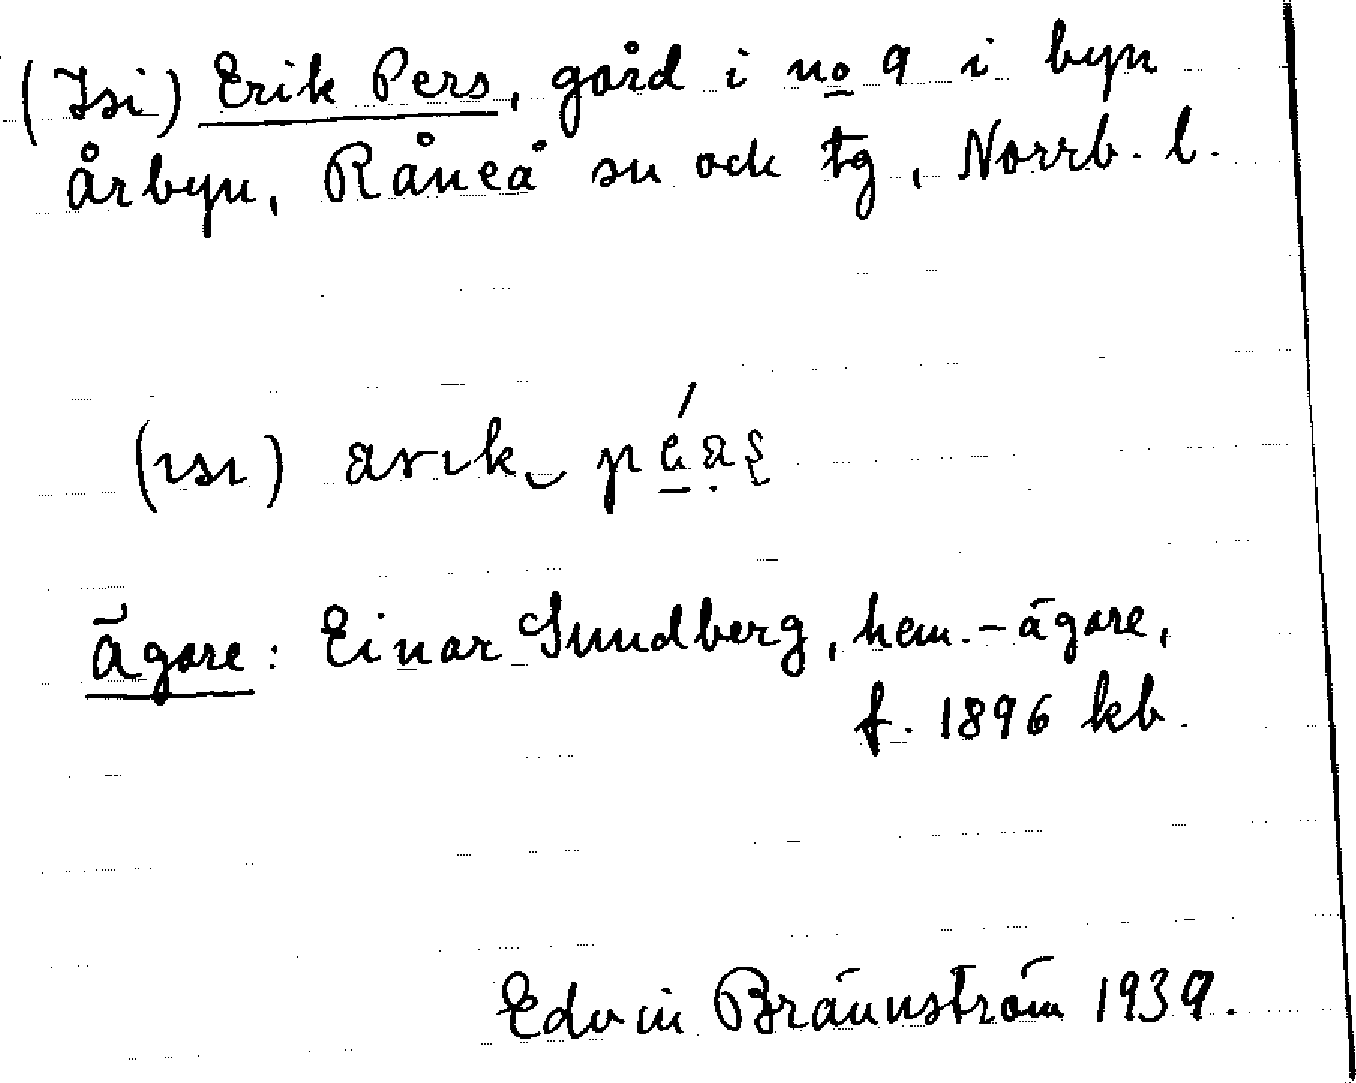 (Isi) Erik Pers, gård i no 9 i byn
Årbyn, Råneå sn och tg, Norrb. l.
(ısı) ärık
ägare: Einar Sundberg, hem.-ägare,
f. 1896 kb.
Edvin Brännström 1939.